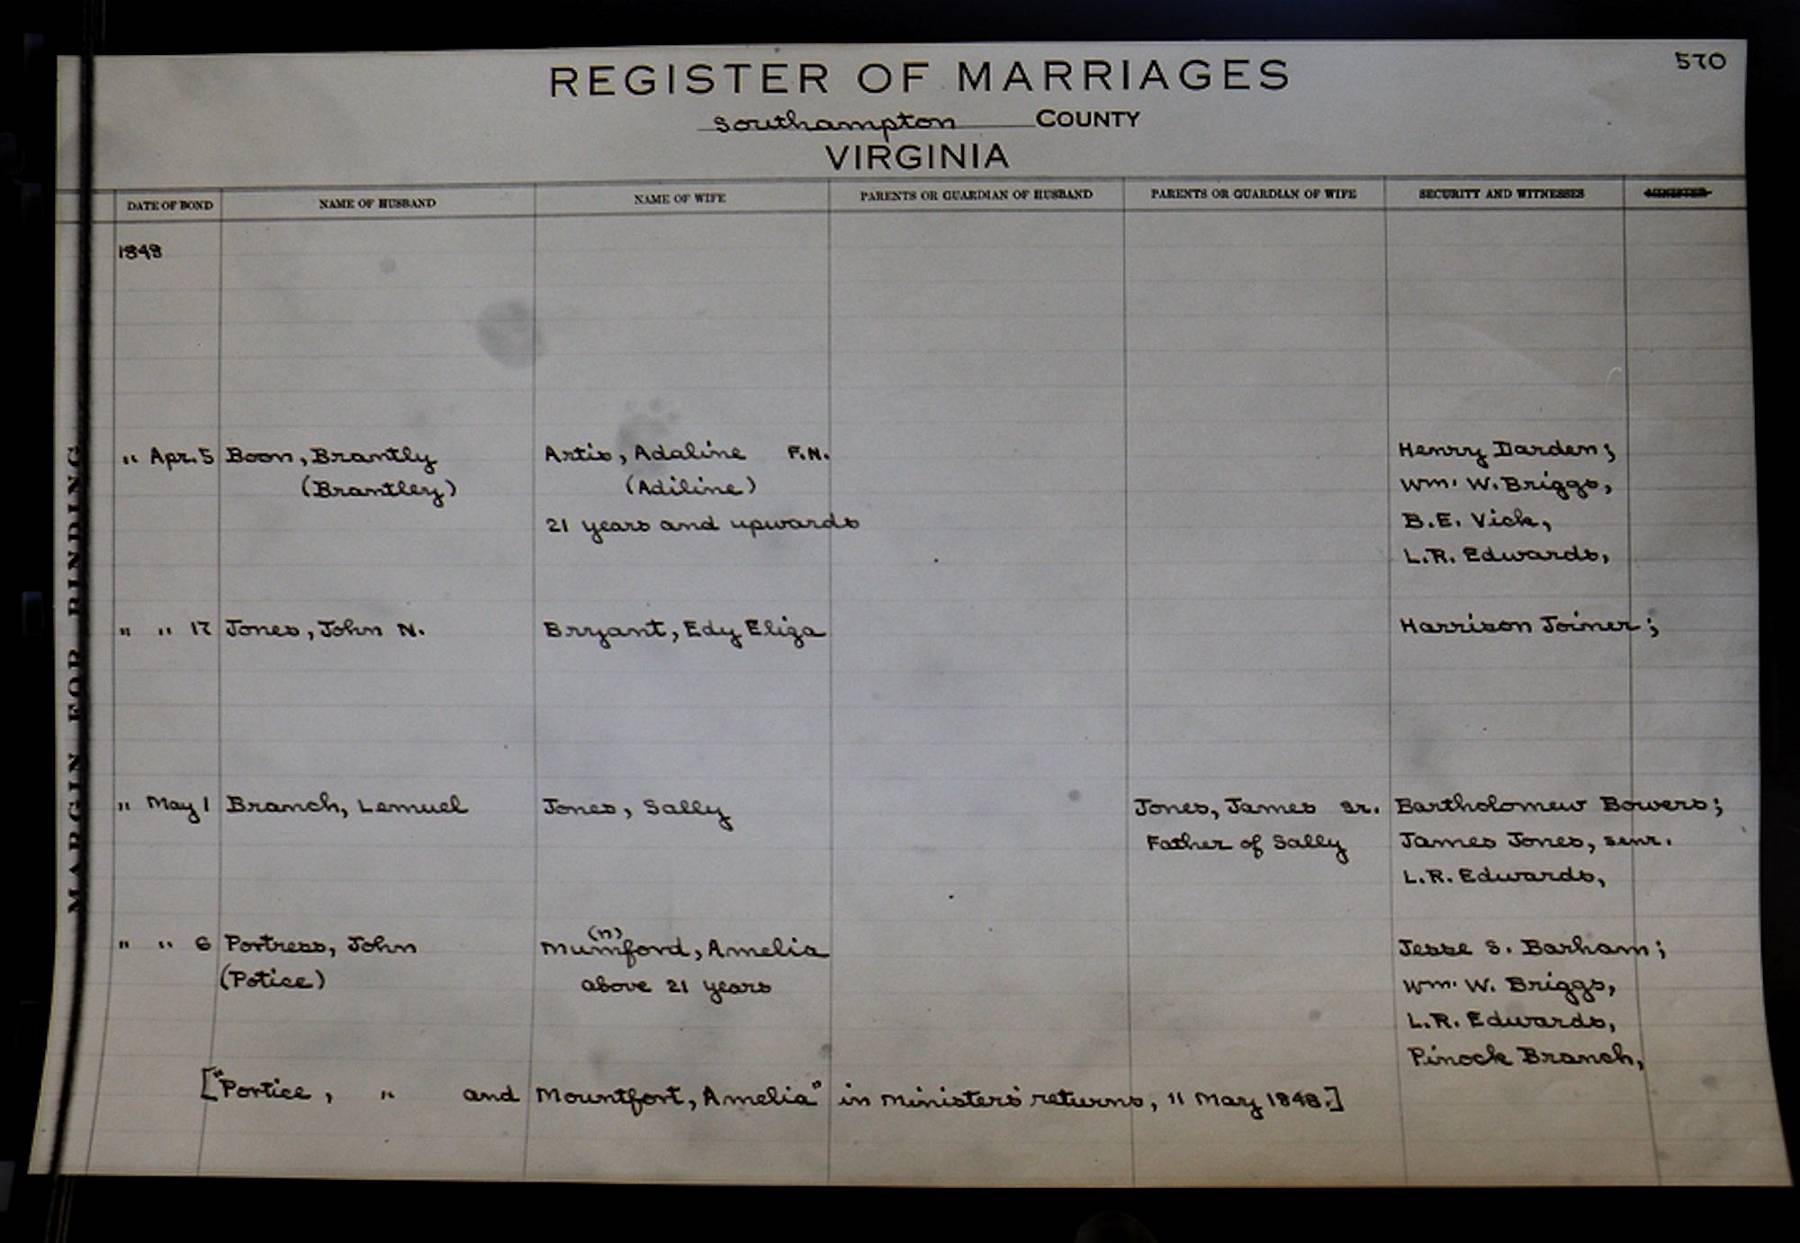 570
REGISTER OF MARRIAGES
Southampton COUNTY
VIRGINIA
DATE OF BOND NAME OF HUSBAND NAME OF WIFE PARENTS OR GUARDIAN OF HUSBAND PARENTS OR GUARDIAN OF WIFE SECURITY AND WITNESSES MINISTER
1848
" Apr. 5 Boon, Brantly Artis, Adaline F.N. Henry Darden;
(Brantley) (Adiline) Wm. W. Briggs,
21 years and upwards B.E. Vick,
L.R. Edwards,
" " 17 Jones, John N. Bryant, Edy Eliza Harrison Joiner;
" May 1 Branch, Lemuel Jones, Sally Jones, James Sr. Bartholomew Bowers;
Father of Sally James Jones, senr.
L.R. Edwards,
(n)
" " 6 Portress, John Mumford, Amelia Jesse S. Barham;
(Potice) above 21 years Wm. W. Briggs,
L.R. Edwards,
Pinock Branch,
["Portice, " and Mountfort, Amelia" in ministers' returns, 11 May 1848.]
MARGIN FOR BINDING